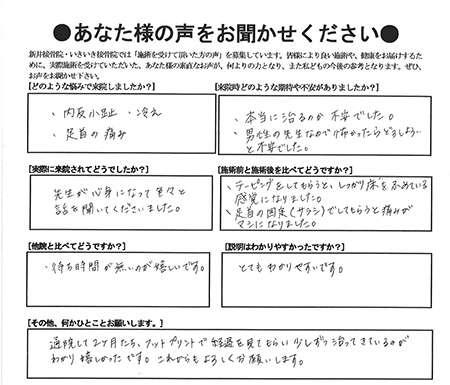 ●あなた様の声をお聞かせください●
新井接骨院・いきいき接骨院では「施術を受けて頂いた方の声」を募集しています。皆様により良い施術や、健康をお届けするた
めに、実際施術を受けていただいた、あなた様の素直なお声が、何よりの力となり、また私どもの今後の参考となります。ぜひ、
お声をお聞かせ下さい。
[どのような悩みで来院しましたか?]
・内反小趾 ・冷え
・足首の痛み
[来院時どのような期待や不安がありましたか?]
・本当に治るのか不安でした。
・男性の先生なので怖かったらどうしよう…
と不安でした。
[実際に来院されてどうでしたか?]
先生が心身になって色々と
話を聞いてくださいました。
[施術前と施術後を比べてどうですか?]
・テーピングをしてもらうと、しっかり床をふめている
感覚になりました。
・足首の固定(サラシ)でしてもらうと痛みが
マシになりました。
[他院と比べてどうですか?]
・待ち時間が無いのが嬉しいです。
[説明はわかりやすかったですか?]
とてもわかりやすいです。
[その他、何かひとことお願いします。]
通院して2ヶ月たち、フットプリントで経過を見てもらい少しずつ治ってきているのが
わかり嬉しかったです。これからもよろしくお願いします。